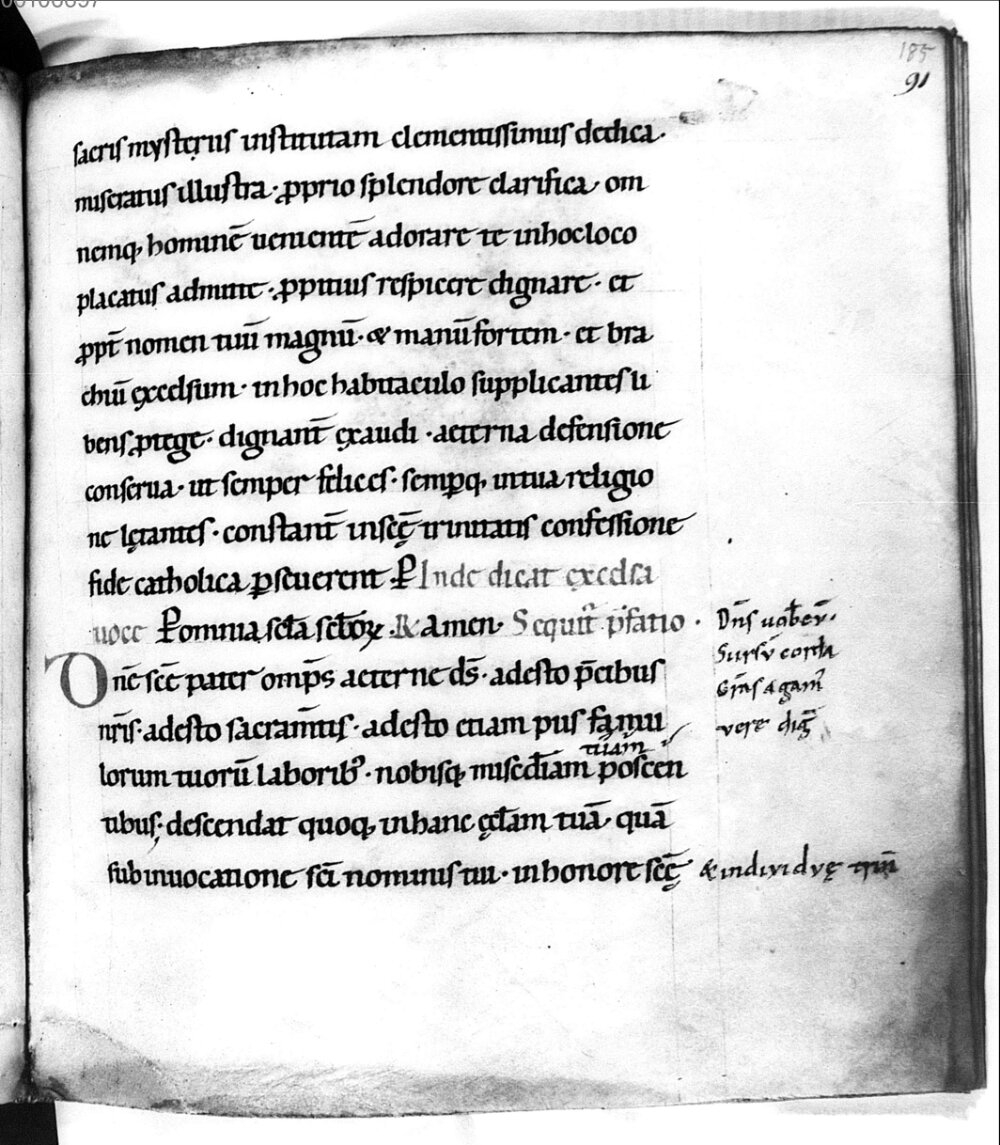 185
91
sacris mysteriis institutam clementissimus dedica·
miseratus illustra· ꝓprio splendore clarifica· om
nemq; hominē uenientē adorare te inhocloco
placatus admitte· ꝓpitius respicere dignare· et
ꝓpt̄ nomen tuū magnū· & manū fortem· et bra
chiū ęxcelsum· inhoc habitaculo supplicantes li
bens ꝓtege· dignant̄ ęxaudi· aeterna defensione
conserua· ut semper felices· semꝑq; intua religio
ne lętantes· constant̄ inscę̄ trinitatis confessione
fide catholica ꝑseuerent P̄ Inde dicat ęxcelsa
uoce Ꝑomnia sc̄la sc̄loꝝ. R̄ amen· Sequit̄ p̄fatio·
Dn̄s uob̄cū·
Sursū corda
Gr̄as agam̄
vere dig̅
Dn̄e sc̄e pater omp̄s aeterne ds̄· adesto p̄cibus
nr̄is· adesto sacram̄tis· adesto etiam piis famu
lorum tuorū laborib;· nobisq; mis̄cdiam tuam poscen
tibus· descendat quoq; inhanc ęcl̄am tuā· quā
sub inuocatione sc̄i nominis tui· inhonore scę̄ & individvę trin̄